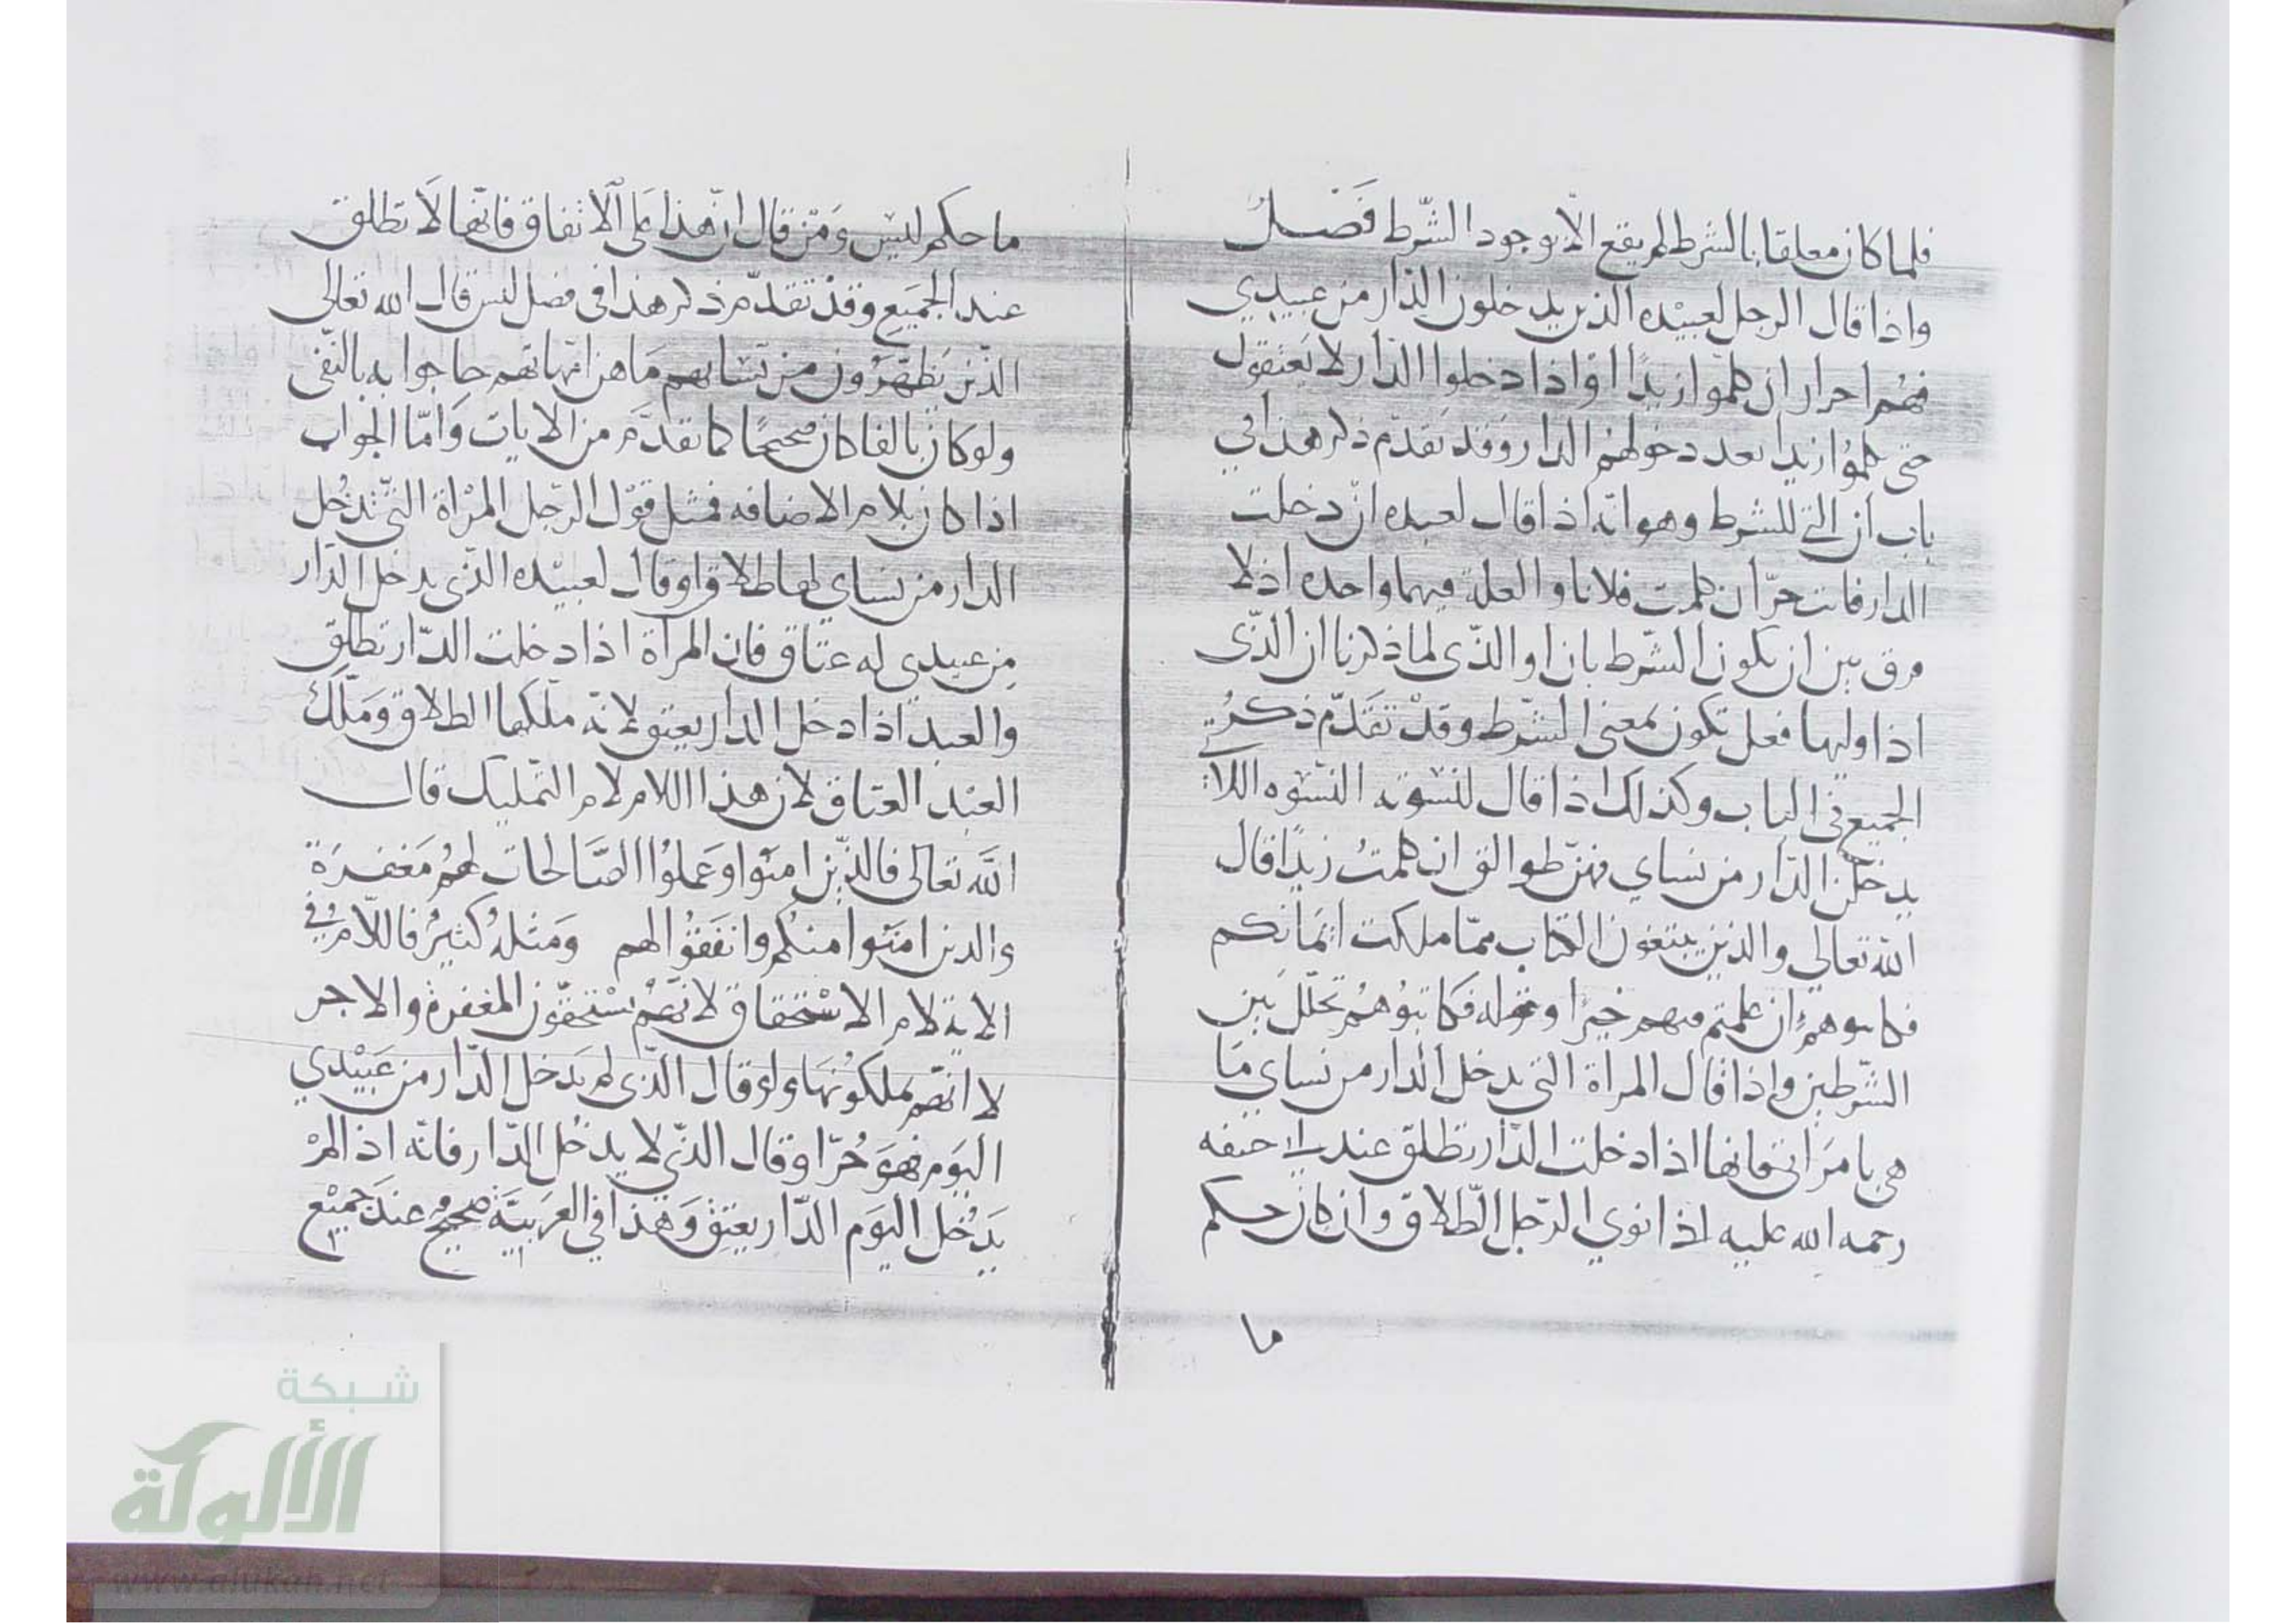 فلما كان معلقا بالشرط لم يقع الّا بوجود الشّرط فَصْـل
واذا قال الرجل لعبيْده الذين يدخلون الدّار من عبيدي
فهُم احرار ان كلّموا زيدًا اوْ اذا دخلوا الدّار لا يَعتقون
حتى كلموُا زيدا بعد دخولهم الدار وَقد تقدّم ذكر هذا في
باب ان التي للشرط وهو انّه اذا قال لعبده ان دخلت
الدار فانت حرّ ان كلمت فلانا والعلة فيهما واحده اذ لا
فرق بين ان يكون الشّرط بان او الذّى لما ذكرنا ان الذّى
اذا وليها فعل تكون بمعنى الشّرط وقدْ تقَدّم ذكرُ
الجميع في الباب وكذلك اذا قال لنسْوته النّسْوه اللاتي
يدخلْن الدّار من نساي فهنّ طوالق ان كلمتُ زيدًا قال
الله تعالي والذين يبتغون الكتاب ممّا ملكت ايْمَانكم
فكاتبوهم ان علمتم فيهم خيرًا وقوله فكاتبوُهُم تخلّل بَين
الشّرطين واذا قال المراة التي تدخل الدار من نساي مَا
هي بامرَاتى فانها اذا دخلت الدّار تطلق عند ابي حنيفه
رحمه الله عليه اذا نوي الرّجل الطّلاق وان كان حكم
ما
ما حكم ليْس وَمَنْ قال انّ هذا عَلى الاتفاق فانّها لَا تطلق
عند الجميَع وقدْ تقدّم ذكر هذا في فصل ليس قال الله تعالى
الذّين يَظهّرُون من نّسَايهم مَا هن امّهاتهم جا جوابه بالنّفى
ولو كان بالفا كان صَحيحًا كما تقدّم من الايات وَامّا الجواب
اذا كان بلام الاضافه فمثل قوْل الرّجل المرْاة التّى تدْخُل
الدار من نساي لها طلاق او قال لعبيْده الذّى يدخل الدّار
مِن عبيدي له عتاق فان المرآة اذا دخلت الدّار تطلق
والعبد اذا دخل الدار يعتق لانّه ملّكها الطلاق وَمَلّكَ
العبْد العتاق لان هذا اللام لام التّمليك قال
اللّه تعالى فالذّين امنوا وَعملوُا الصّالحات لهُم مَغفـرَة
والذين امنَوا منكُم وانفَقوُا لهم وَمثلهُ كثيرُ فاللّام في
الاية لام الاسْتحقاق لانّهُم يسْتحقّون المغفرة والاجر
لا انّهم يملكوُنهَا ولو قال الذّى لم يَدخل الدّار من عَبيْدي
اليَوم فهوَ حُرّ او قال الذّي لا يدخُل الدّار فانّه اذا لمْ
يَدْخُل اليَوم الدّار يعتقِ وَهذا في العَربيّة صحيح عندَ جميْع
شبكة
الألوكة
www.alukah.net